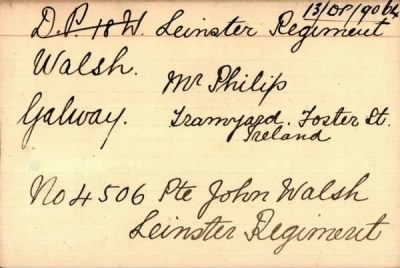 13/DP/9064
D.P. 18 W. Leinster Regiment
Walsh.
Mr Philip
Galway. Tramyard. Foster St.
Ireland
No 4506 Pte John Walsh
Leinster Regiment